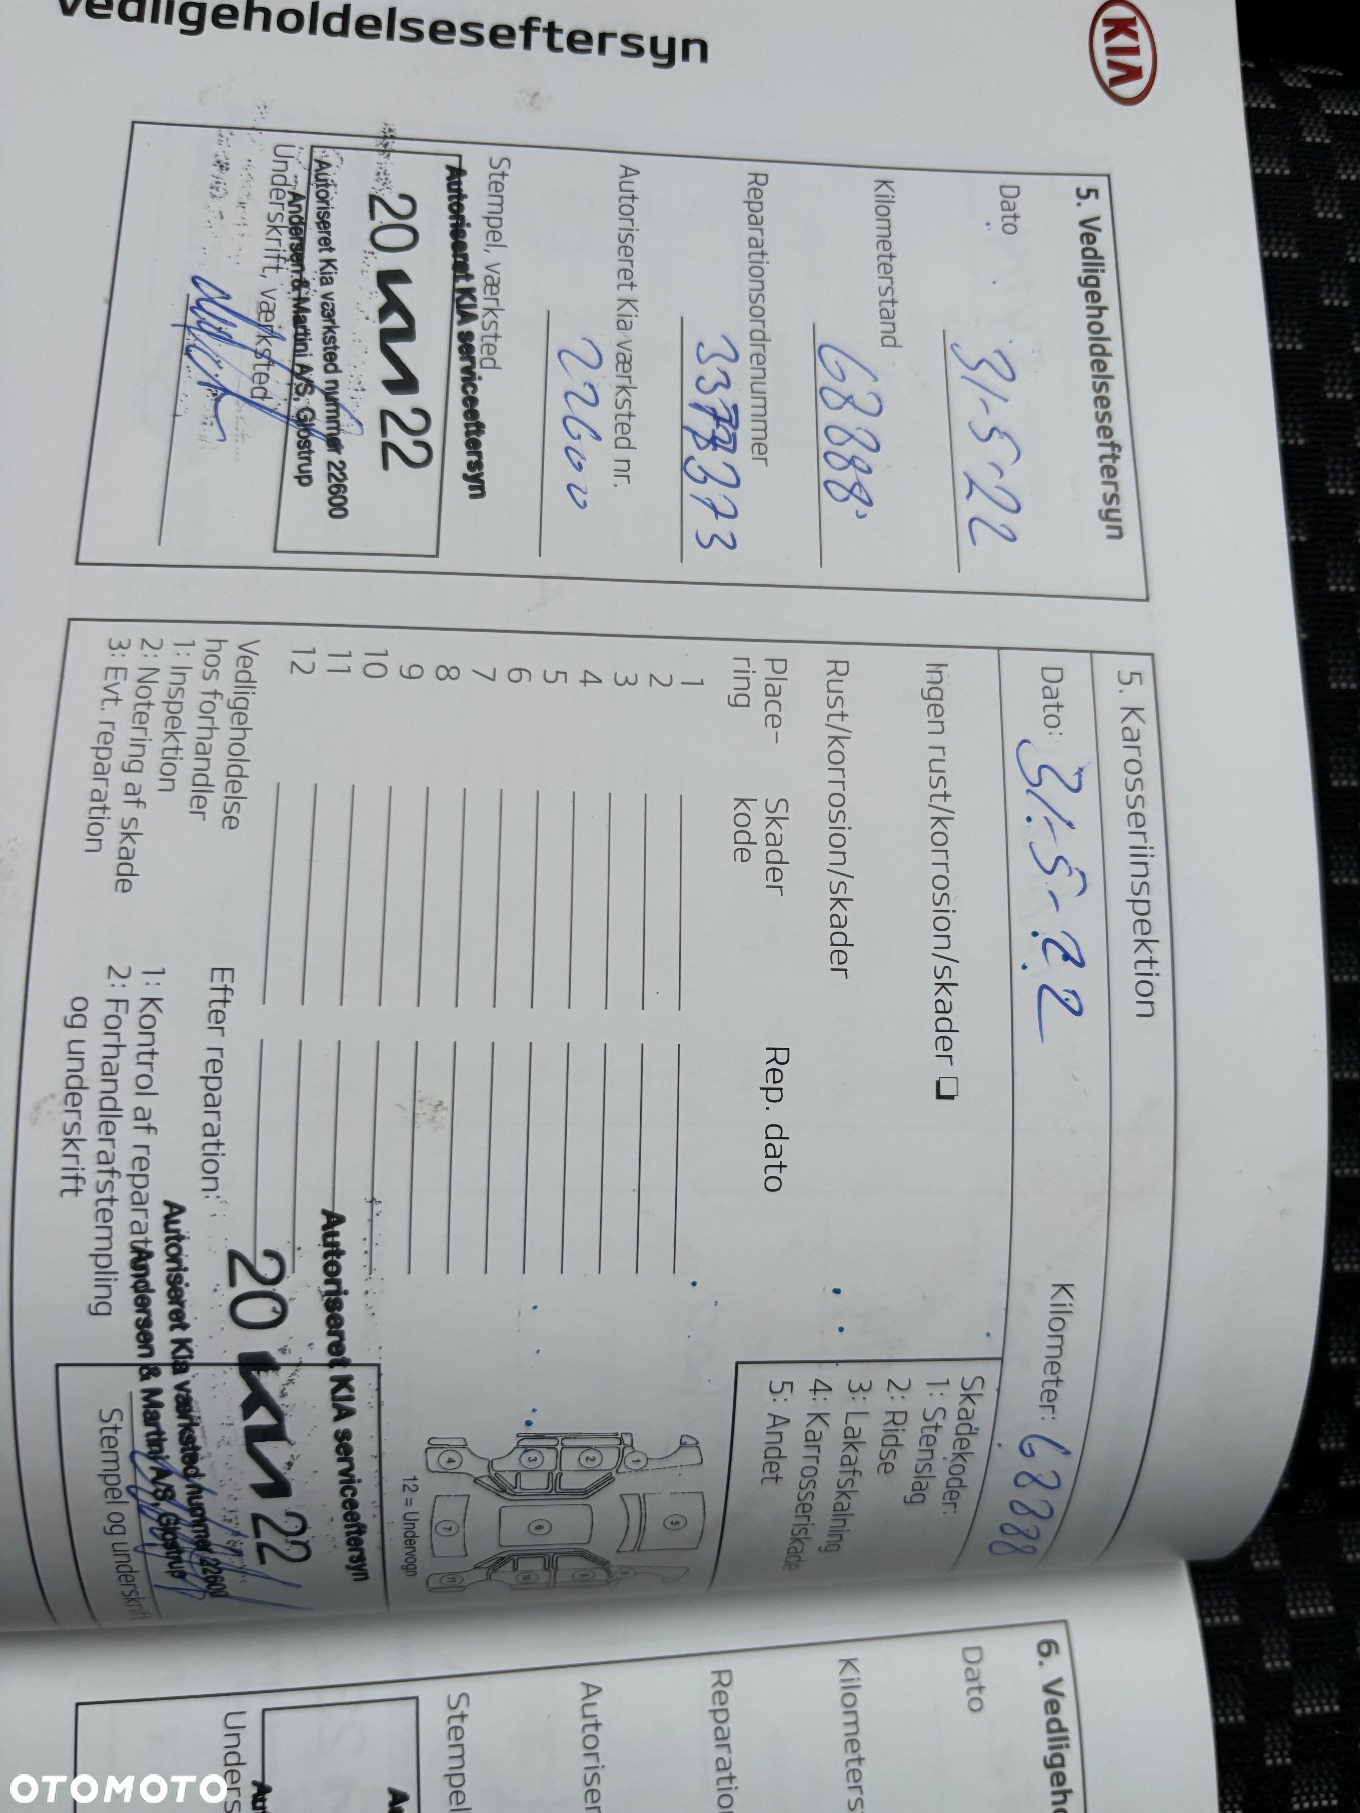 KIA
vedligeholdelseseftersyn
5. Vedligeholdelseseftersyn
Dato
31-5-22
Kilometerstand
68888
Reparationsordrenummer
Autoriseret Kia værksted nr.
22600
Stempel, værksted
Autoriseret KIA serviceeftersyn
20 KIA 22
Autoriseret Kia værksted nummer 22600
Andersen & Martini A/S, Glostrup
Underskrift, værksted
5. Karosseriinspektion
Dato: 31-5-22
Kilometer: 68888
Ingen rust/korrosion/skader
Rust/korrosion/skader
Skadekoder:
1: Stenslag
2: Ridse
3: Lakafskalning
4: Karrosseriskade
5: Andet
Place- Skader Rep. dato
ring kode
1
2
3
4
5
6
7
8
9
10
11
12
12 = Undervogn
Vedligeholdelse
hos forhandler
1: Inspektion
2: Notering af skade
3: Evt. reparation
Efter reparation:
1: Kontrol af reparat
2: Forhandlerafstempling
og underskrift
Autoriseret KIA serviceeftersyn
20 KIA 22
Autoriseret Kia værksted nummer 22600
Andersen & Martini A/S, Glostrup
Stempel og underskrift
6. Vedligeh
Dato
Kilometers
Reparatio
Autoriser
Stempel
Unders
OTOMOTO